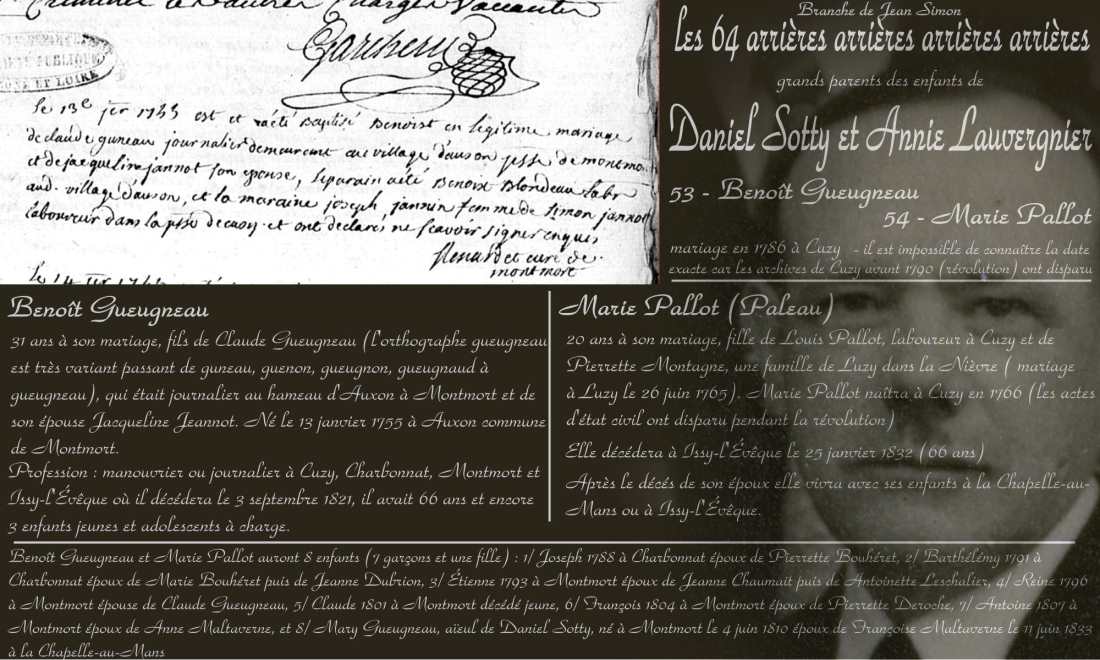 Branche de Jean Simon
les 64 arrières arrières arrières arrières
grands parents des enfants de
Daniel Sotty et Annie Lauvergnier
53 - Benoît Gueugneau
54 - Marie Pallot
mariage en 1786 à Cuzy - il est impossible de connaître la date
exacte car les archives de Cuzy avant 1790 (révolution) ont disparu
PUBLIQUE
ET LOIRE
le 13e jer 1755 est et été Baptisé Benoist en légitime mariage
de claude guneau journalier demeurant au village d'auson psse de montmo
et de jacqueline jannot son epouse, le parain a été Benoist Blondeau labr
aud. village d'auson, et la maraine joseph jannin femme de simon jannot
laboureur dans la psse de cuzy et ont declarés ne scavoir signer enquis
Renaud et curé de
montmort
le 14
Benoît Gueugneau
31 ans à son mariage, fils de Claude Gueugneau (l'orthographe gueugneau
est très variant passant de guneau, guenon, gueugnon, gueugnaud à
gueugneau), qui était journalier au hameau d'Auxon à Montmort et de
son épouse Jacqueline Jeannot. Né le 13 janvier 1755 à Auxon commune
de Montmort.
Profession : manouvrier ou journalier à Cuzy, Charbonnat, Montmort et
Issy-l'Évêque où il décédera le 3 septembre 1821, il avait 66 ans et encore
3 enfants jeunes et adolescents à charge.
Marie Pallot (Paleau)
20 ans à son mariage, fille de Louis Pallot, laboureur à Cuzy et de
Pierrette Montagne, une famille de Luzy dans la Nièvre ( mariage
à Luzy le 26 juin 1765). Marie Pallot naîtra à Cuzy en 1766 (les actes
d'état civil ont disparu pendant la révolution)
Elle décédera à Issy-l'Évêque le 25 janvier 1832 (66 ans)
Après le décés de son époux elle vivra avec ses enfants à la Chapelle-au-
Mans ou à Issy-l'Évêque.
Benoît Gueugneau et Marie Pallot auront 8 enfants (7 garçons et une fille) : 1/ Joseph 1788 à Charbonnat époux de Pierrette Bouhéret, 2/ Barthélémy 1791 à
Charbonnat époux de Marie Bouhéret puis de Jeanne Dubrion, 3/ Étienne 1793 à Montmort époux de Jeanne Chaumait puis de Antoinette Leschalier, 4/ Reine 1796
à Montmort épouse de Claude Gueugneau, 5/ Claude 1801 à Montmort décédé jeune, 6/ François 1804 à Montmort époux de Pierrette Deroche, 7/ Antoine 1807 à
Montmort époux de Anne Maltaverne, et 8/ Mary Gueugneau, aïeul de Daniel Sotty, né à Montmort le 4 juin 1810 époux de Françoise Maltaverne le 11 juin 1833
à la Chapelle-au-Mans